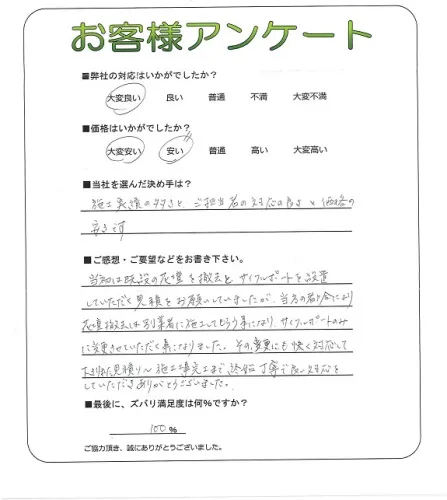 お客様アンケート
■弊社の対応はいかがでしたか?
大変良い 良い 普通 不満 大変不満
■価格はいかがでしたか?
大変安い 安い 普通 高い 大変高い
■当社を選んだ決め手は?
施工実績の多さと、ご担当者の対応の良さと価格の
安さです
■ご感想・ご要望などをお書き下さい。
当初は既設の花壇を撤去と サイクルポートを設置
していただく見積をお願いしていましたが、当方の都合により
花壇撤去は別業者に施工してもらう事になり、サイクルポートのみ
に変更させていただく事になりました。その変更にも快く対応して
下さり見積り〜施工完工まで、終始丁寧で良い対応を
していただきありがとうございました。
■最後に、ズバリ満足度は何%ですか?
100 %
ご協力頂き、誠にありがとうございました。